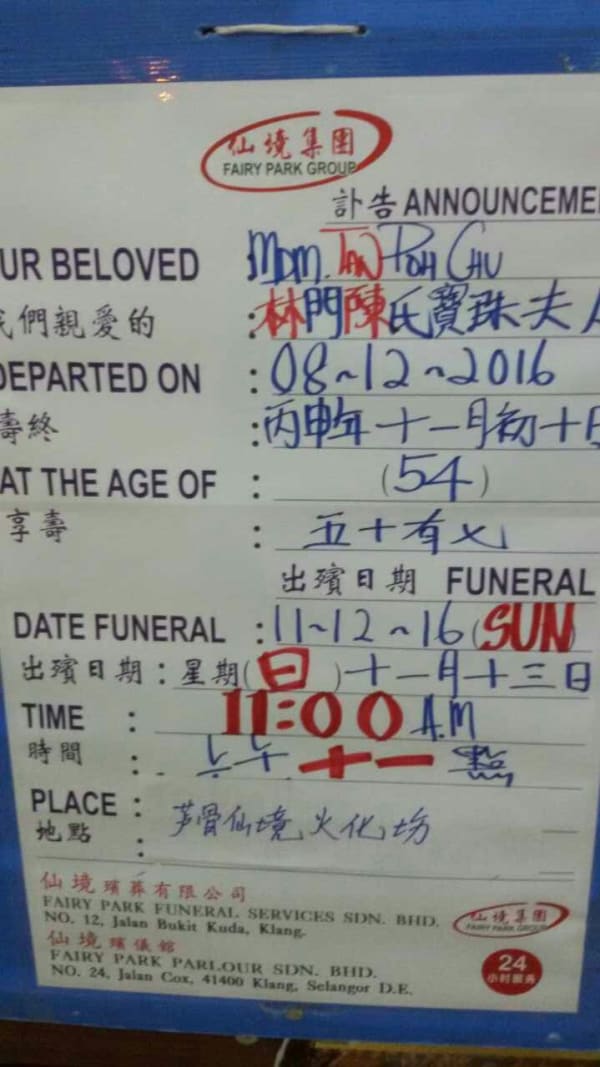 仙境集團
FAIRY PARK GROUP
訃告 ANNOUNCEME
UR BELOVED MDM. TAN POH CHU
們親愛的 : 林門陳氏寶珠夫人
DEPARTED ON : 08~12~2016
壽終 : 丙申年十一月初十日
AT THE AGE OF : (54)
享壽 : 五十有七
出殯日期 FUNERAL
DATE FUNERAL : 11~12~16 (SUN)
出殯日期 : 星期(日)十一月十三日
TIME : 11:00 A.M
時間 : 上午十一點
PLACE : 芦骨仙境火化坊
地點 :
仙境殯葬有限公司
FAIRY PARK FUNERAL SERVICES SDN. BHD.
NO. 12, Jalan Bukit Kuda, Klang.
仙境集團
FAIRY PARK GROUP
仙境殯儀館
FAIRY PARK PARLOUR SDN. BHD.
NO. 24, Jalan Cox, 41400 Klang, Selangor D.E.
24
小时服务